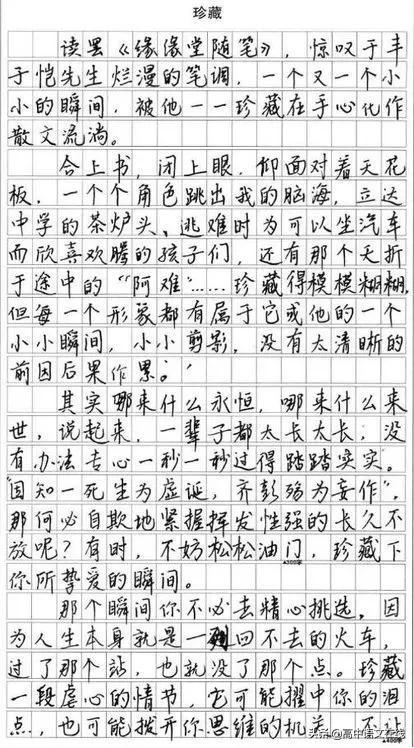 珍藏
读罢《缘缘堂随笔》，惊叹于丰
子恺先生烂漫的笔调，一个又一个小
小的瞬间，被他一一珍藏在手心化作
散文流淌。
合上书，闭上眼，仰面对着天花
板，一个个角色跳出我的脑海，立达
中学的茶炉头、逃难时为可以坐汽车
而欣喜欢腾的孩子们，还有那个夭折
于途中的“阿难”……珍藏得模模糊糊，
但每一个形象都有属于它或他的一个
小小瞬间，小小剪影，没有太清晰的
前因后果作累。
其实哪来什么永恒，哪来什么来
世，说起来，一辈子都太长太长，没
有办法专心一秒一秒过得踏踏实实。
“固知一死生为虚诞，齐彭殇为妄作”，
那何必自欺地紧握挥发性强的长久不
放呢？有时，不妨松松油门，珍藏下
▲300字
你所挚爱的瞬间。
那个瞬间你不必去精心挑选，因
为人生本身就是一列回不去的火车，
过了那个站，也就没了那个点。珍藏
一段虐心的情节，它可能擢中你的泪
点，也可能拨开你思维的机关，不让
▲400字
头条@高中语文在线